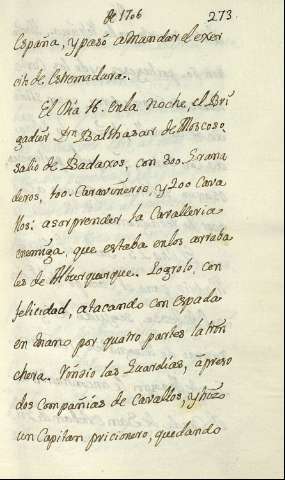 de 1706
273
España, y pasó a Mandar el exer
cito de Estremadura.
El Dia 16. en la noche, el Bri
gadier Dn Balthasar de Moscoso,
salio de Badaxos, con 800. Grana
deros, 400. Caravineros, y 200 Cava
llos: a sorprender la Cavalleria
enemiga, que estaba en los arraba
les de Alburquerque. Logrolo, con
felicidad, atacando con espada
en mano por quatro partes la trin
chera. Rindio las Guardias, apreso
dos Compañias de Cavallos, y hizo
un Capitan pricionero, quedando